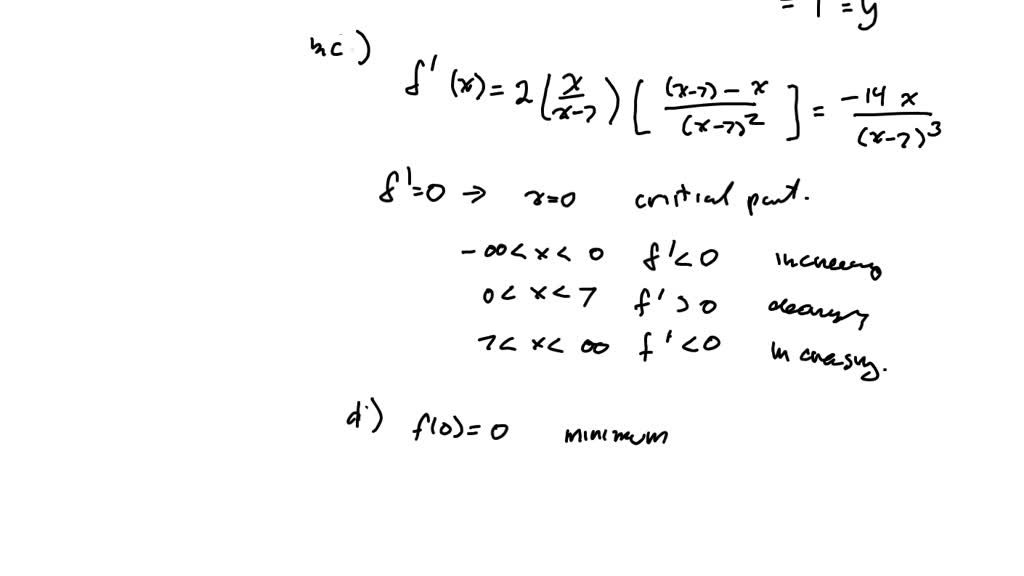 = 1 = y
b,c.)
f'(x) = 2 (x/(x-7)) [((x-7) - x)/(x-7)^2] = -14 x/(x-7)^3
f'=0 → x=0 critical point.
-∞ < x < 0 f' < 0 increasing
0 < x < 7 f' > 0 decreasing
7 < x < ∞ f' < 0 Increasing.
d.) f(0) = 0 minimum